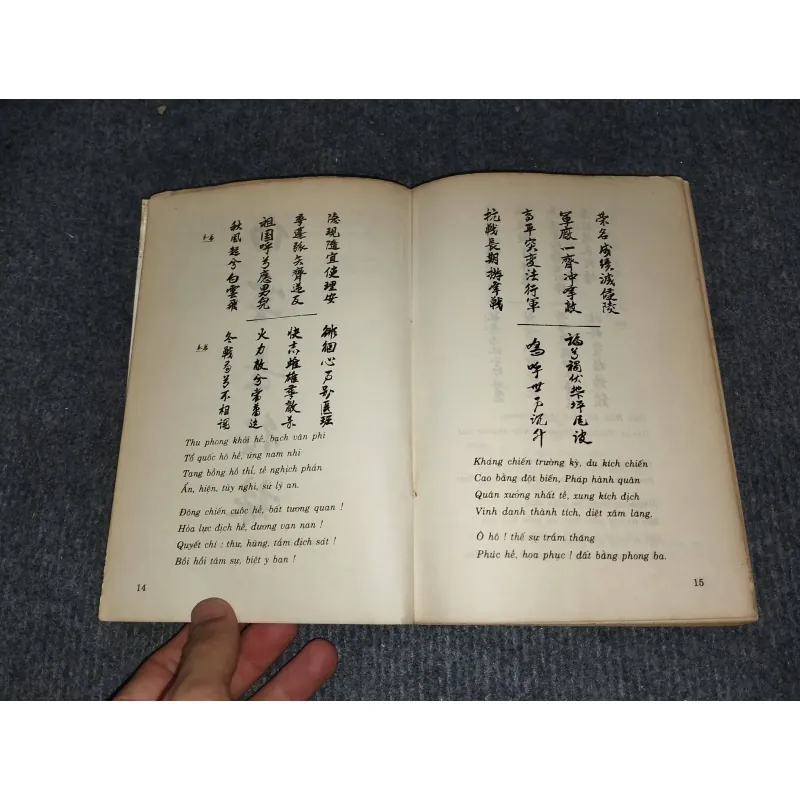 秋風起兮白雲飛
祖国呼兮應男兒
蓬弧矢齊逆反
隐現隨宜使理安
冬戰局兮不相
火力敵兮當萬
快志雌雄 敵
徘徊心事别
Thu phong khởi hề, bạch vân phi
Tổ quốc hô hề, ứng nam nhi
Tang bồng hồ thỉ, tề nghịch phản
Ẩn, hiện, tùy nghi, sử lý an.
Đông chiến cuộc hề, bất tương quan !
Hỏa lực địch hề, đương vạn nan !
Quyết chí : thư, hùng, tầm địch sát !
Bồi hồi tâm sự, biệt y ban !
14
抗戰長期游擊戰
高平突変法行軍
軍廠一齊冲擊敵
榮名成績滅侵陵
嗚呼世事沉升
福兮禍伏 坪尾波
Kháng chiến trường kỳ, du kích chiến
Cao bằng đột biến, Pháp hành quân
Quân xưởng nhất tề, xung kích địch
Vinh danh thành tích, diệt xâm lăng.
Ô hô ! thế sự trầm thăng
Phúc hề, họa phục ! đất bằng phong ba.
15